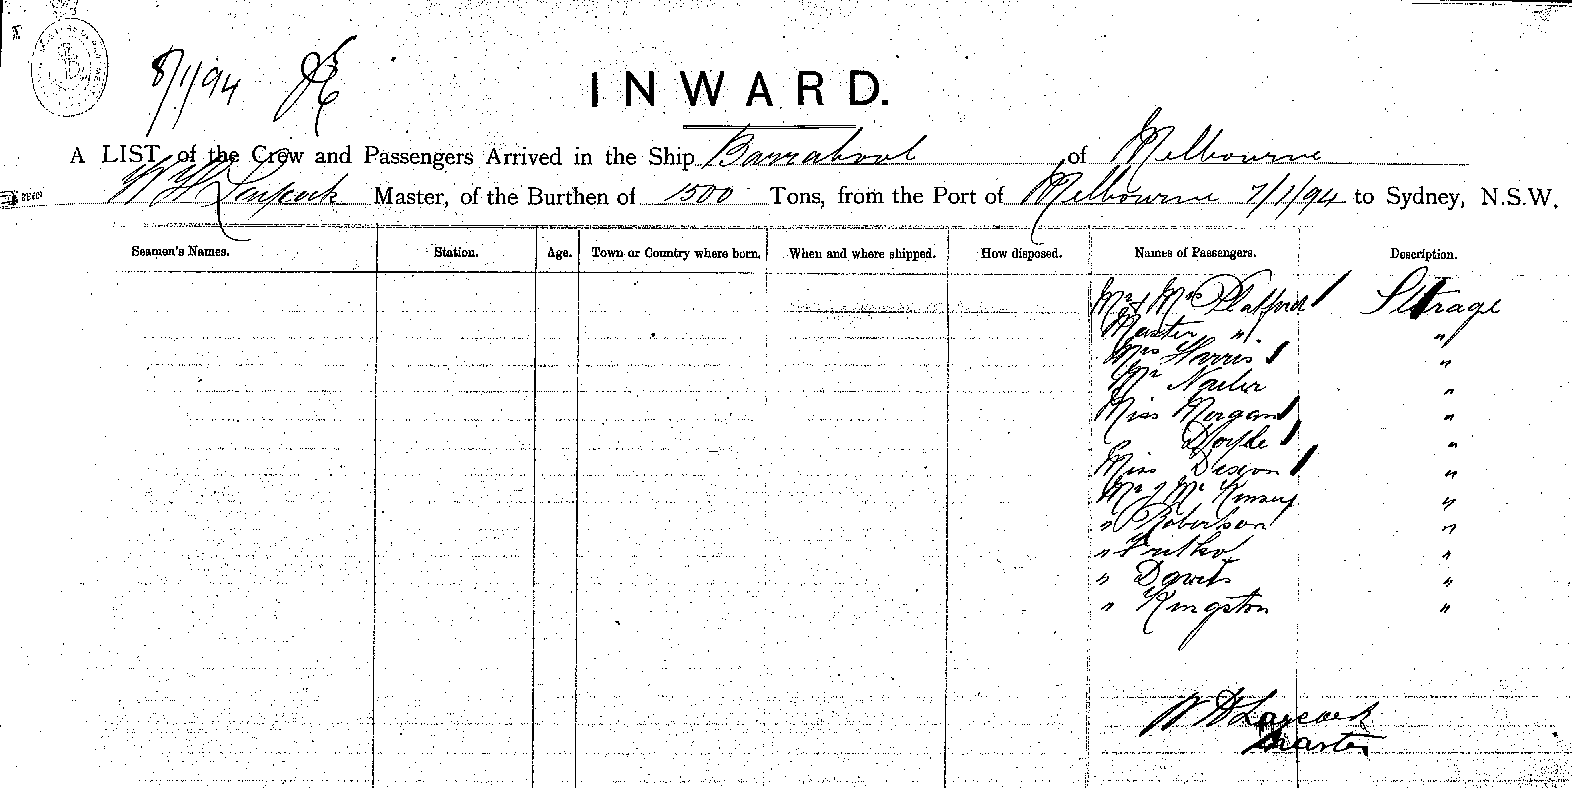 8/1/94
INWARD.
A LIST of the Crew and Passengers Arrived in the Ship Barrabool of Melbourne
W H Laycock Master, of the Burthen of 1500 Tons, from the Port of Melbourne 7/1/94 to Sydney, N.S.W.
Seamen's Names. Station. Age. Town or Country where born. When and where shipped. How disposed. Names of Passengers. Description.
Mr & Mrs Platford Steerage
Master " "
Mrs Harris "
Mr "
Miss Morgan "
"
Miss Dixon "
Mr & Mrs Kinsey "
" Robertson "
" "
" "
" Kingston "
Laycock
Master